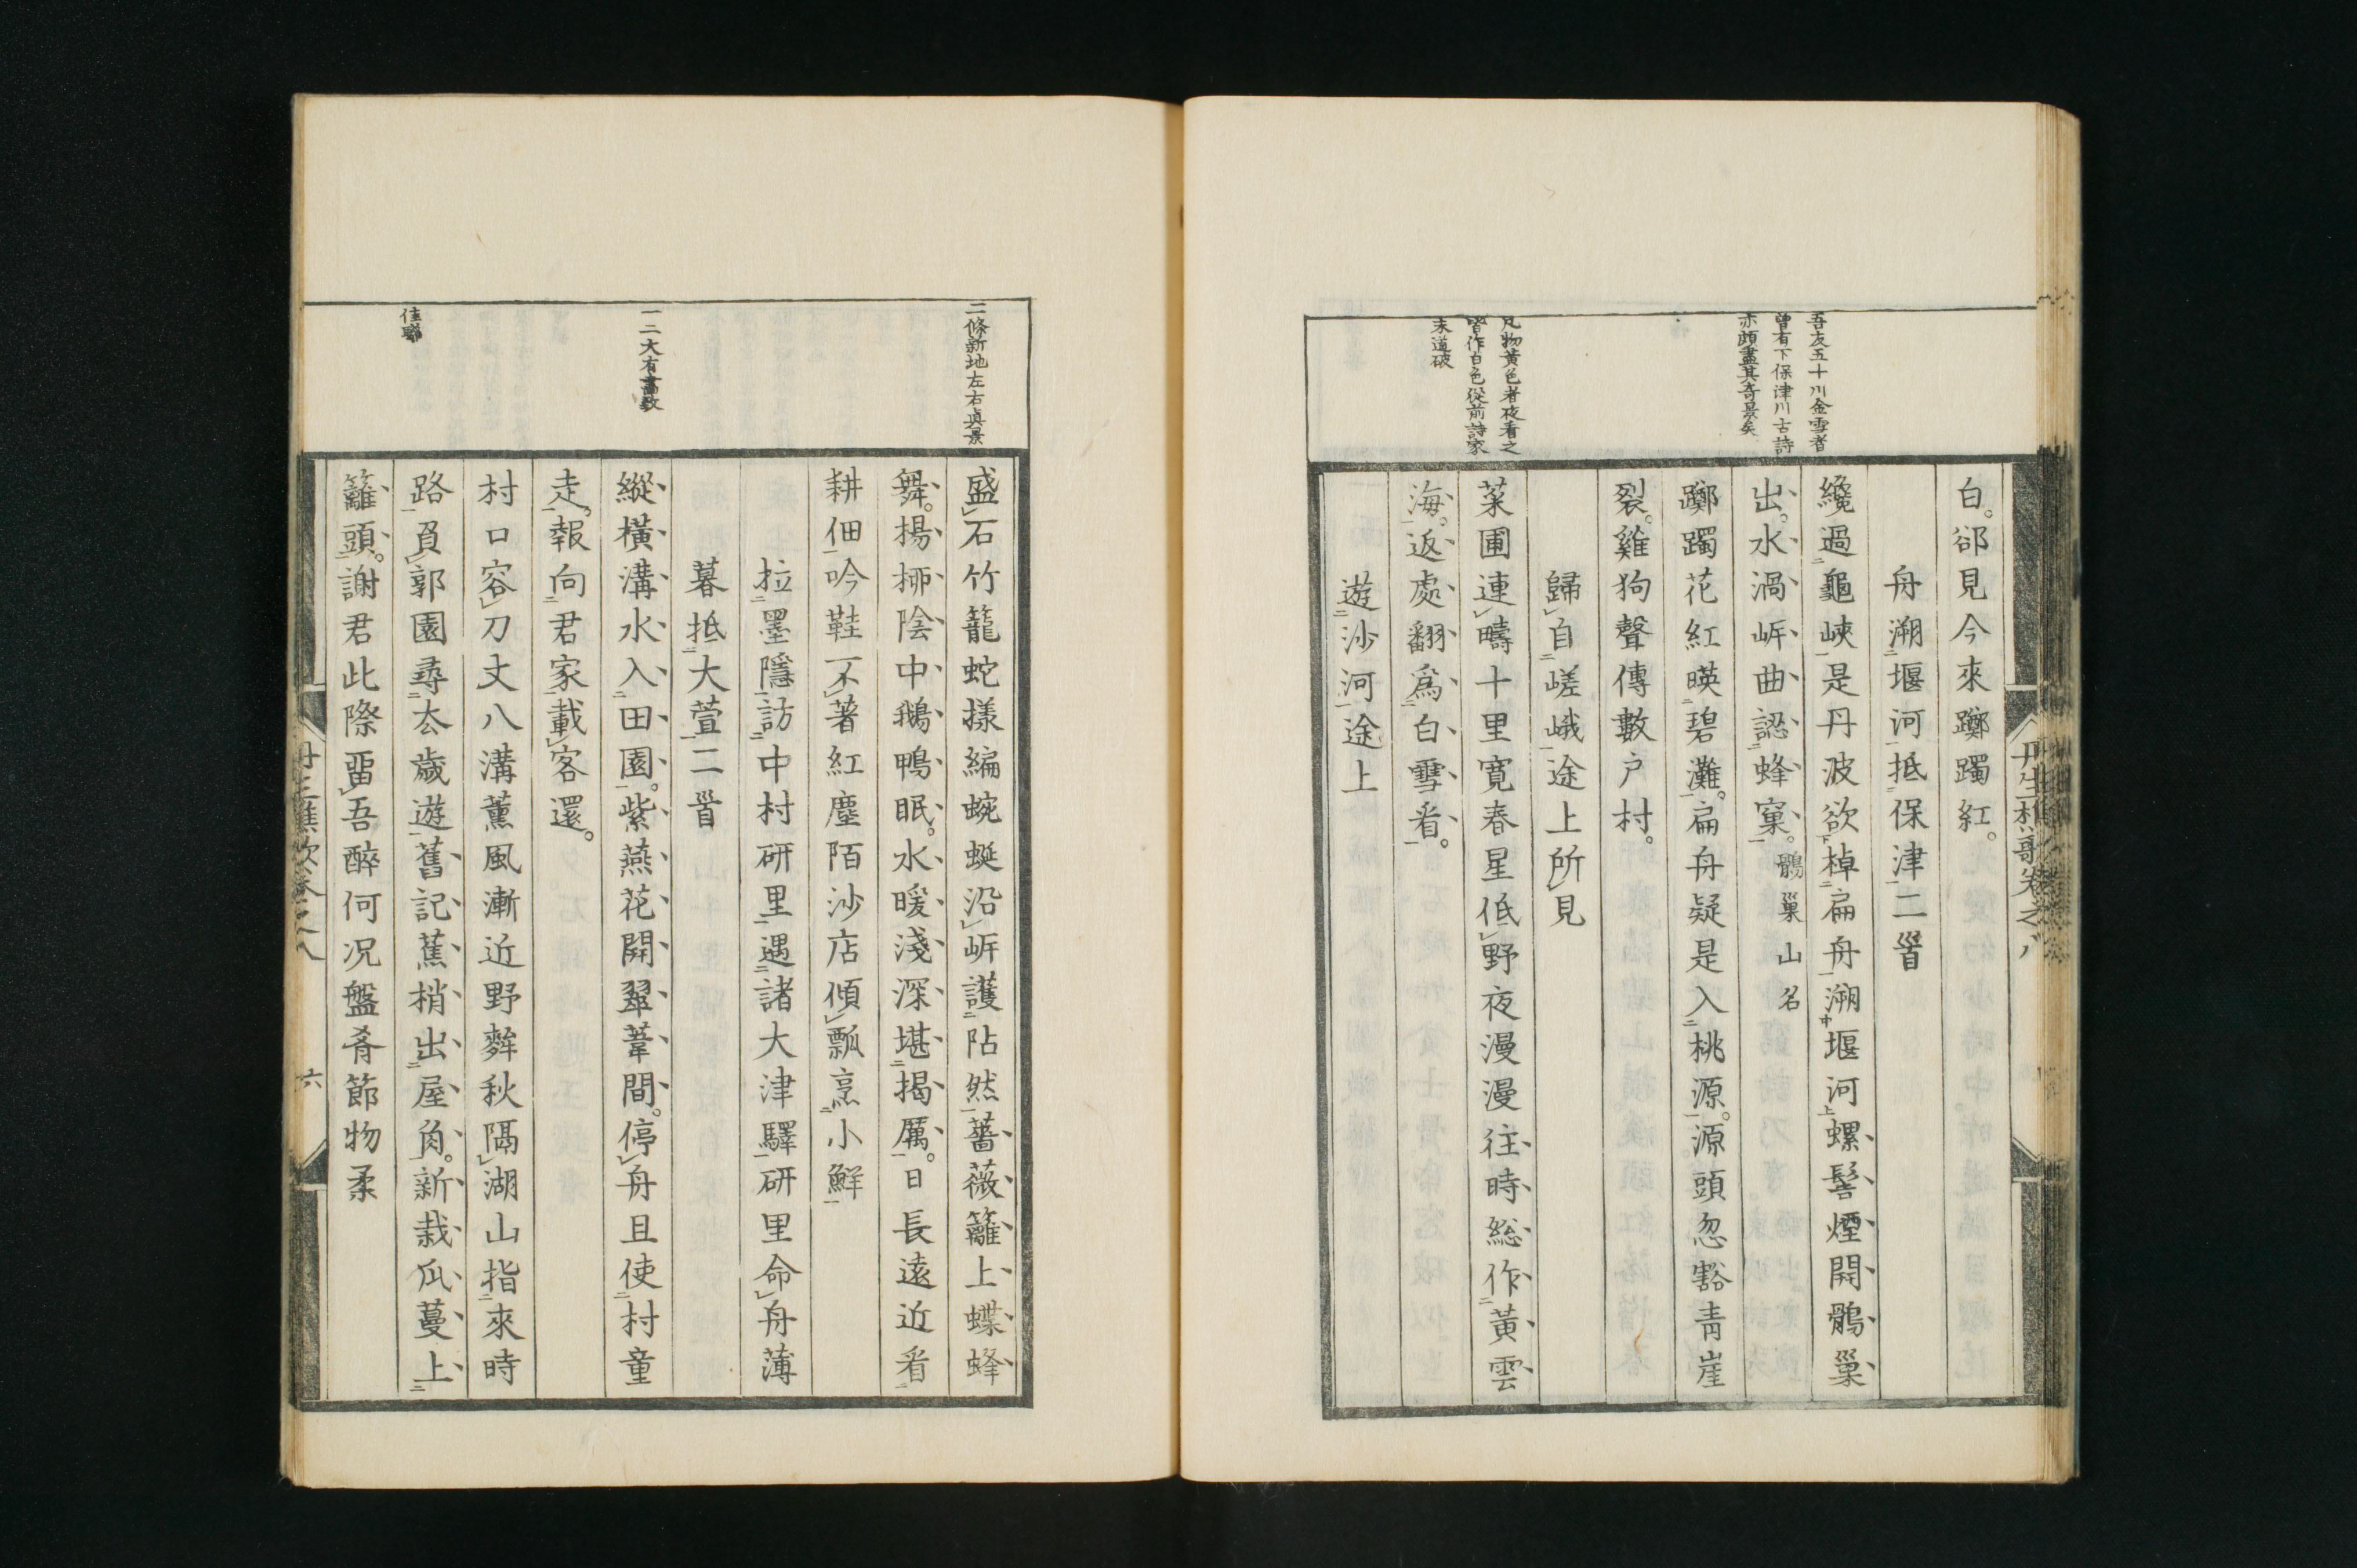 吾友五十川金雪者
曾有下保津川古詩
亦頗盡其奇景矣
凡物黃色者夜看之
皆作白色從前詩家
未道破
白。郤見今來躑躅紅。
舟溯堰河抵保津二首
纔過龜峽是丹波欲棹扁舟溯堰河螺髻煙開鶻巢
出。水渦岸曲認蜂窠。鶻巢山名
躑躅花紅暎碧灘。扁舟疑是入桃源。源頭忽豁靑崖
裂。雞狗聲傳數戶村。
歸自嵯峨途上所見
菜圃連疇十里寬春星低野夜漫漫往時総作黃雲
海。返處翻爲白雪看。
遊沙河途上
丹生樵歌卷之八
二條新地左右真景
一二大有畫致
佳聯
盛石竹籠蛇㨾編蜿蜒沿岸護阽然薔薇籬上蝶蜂
舞。楊栁陰中鵝鴨眠。水暖淺深堪揭厲。日長遠近看
耕佃吟鞋不著紅塵陌沙店傾瓢烹小鮮
拉墨隱訪中村硏里遇諸大津驛硏里命舟薄
暮抵大萱二首
縱橫溝水入田園。紫燕花開翠葦間。停舟且使村童
走。報向君家載客還。
村口容刀丈八溝薰風漸近野麰秋隔湖山指來時
路負郭園尋厺歲遊舊記蕉梢出屋角。新栽瓜蔓上
籬頭。謝君此際畱吾醉何况盤肴節物柔
丹生樵歌卷之八
六